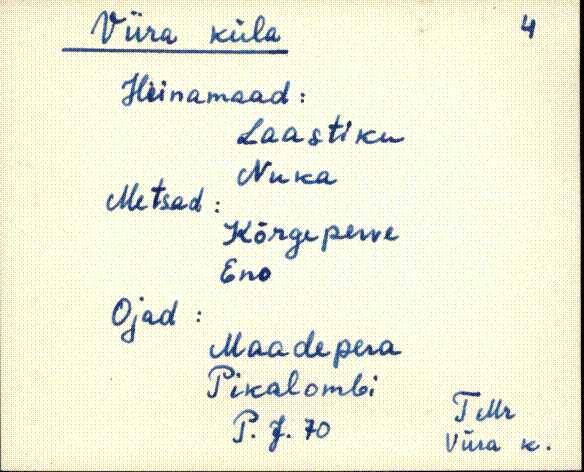 Viira küla 4
Heinamaad :
Laastiku
Nuka
Metsad :
Kõrgeperve
Eno
Ojad :
Maadepera
Pikalombi
P. J. 70
T Mr
Viira k.